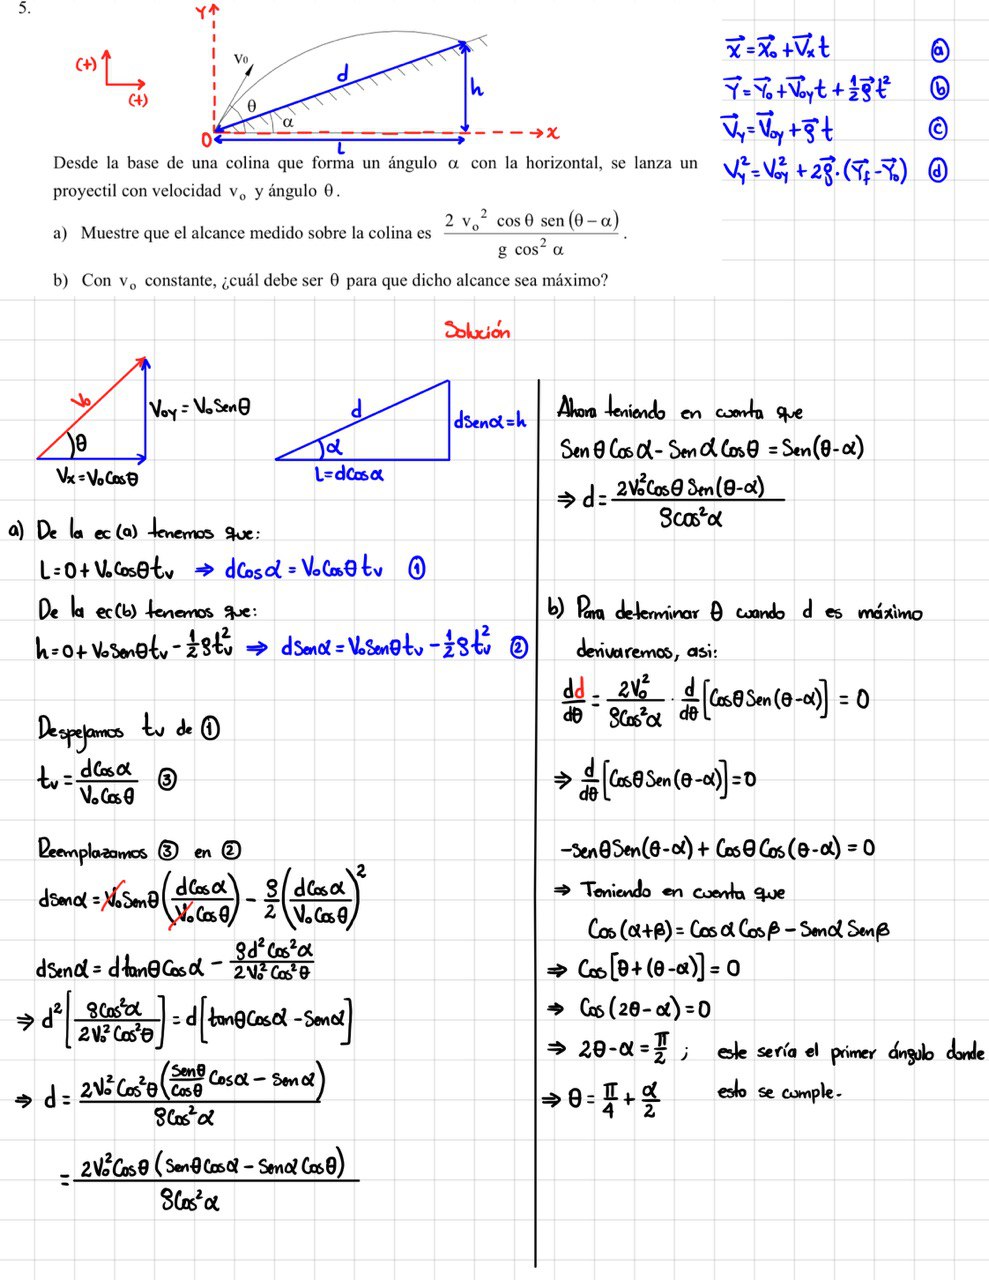 5.
Y
(+)
(+)
V₀
θ
α
d
h
O
L
x
x⃗=x⃗₀+V⃗ₓt (a)
Y⃗=Y⃗₀+V⃗₀yt+½g⃗t² (b)
V⃗y=V⃗oy+g⃗t (c)
Vy²=Voy²+2g⃗·(Y⃗f-Y⃗₀) (d)
Desde la base de una colina que forma un ángulo α con la horizontal, se lanza un
proyectil con velocidad v₀ y ángulo θ.
a) Muestre que el alcance medido sobre la colina es 2 v₀² cos θ sen (θ − α) / g cos² α .
b) Con v₀ constante, ¿cuál debe ser θ para que dicho alcance sea máximo?
Solución
V₀
θ
Voy=V₀Senθ
Vx=V₀Cosθ
d
α
dSenα=h
L=dCosα
a) De la ec(a) tenemos que:
L=0+V₀Cosθtv ⇒ dCosα=V₀Cosθtv ①
De la ec(b) tenemos que:
h=0+V₀Senθtv-½gtv² ⇒ dSenα=V₀Senθtv-½gtv² ②
Despejamos tv de ①
tv=dCosα/V₀Cosθ ③
Reemplazamos ③ en ②
dSenα=V₀Senθ(dCosα/V₀Cosθ)-g/2(dCosα/V₀Cosθ)²
dSenα=dtanθCosα-gd²Cos²α/2V₀²Cos²θ
⇒ d²[gCos²α/2V₀²Cos²θ]=d[tanθCosα-Senα]
⇒ d=2V₀²Cos²θ(Senθ/Cosθ Cosα-Senα)/gCos²α
=2V₀²Cosθ(SenθCosα-SenαCosθ)/gCos²α
Ahora teniendo en cuenta que
SenθCosα-SenαCosθ=Sen(θ-α)
⇒ d=2V₀²CosθSen(θ-α)/gcos²α
b) Para determinar θ cuando d es máximo
derivaremos, asi:
dd/dθ=2V₀²/gCos²α·d/dθ[CosθSen(θ-α)]=0
⇒ d/dθ[CosθSen(θ-α)]=0
-senθSen(θ-α)+CosθCos(θ-α)=0
⇒ Teniendo en cuenta que
Cos(α+β)=CosαCosβ-SenαSenβ
⇒ Cos[θ+(θ-α)]=0
⇒ Cos(2θ-α)=0
⇒ 2θ-α=π/2 ; este sería el primer ángulo donde
⇒ θ=π/4+α/2 esto se cumple.